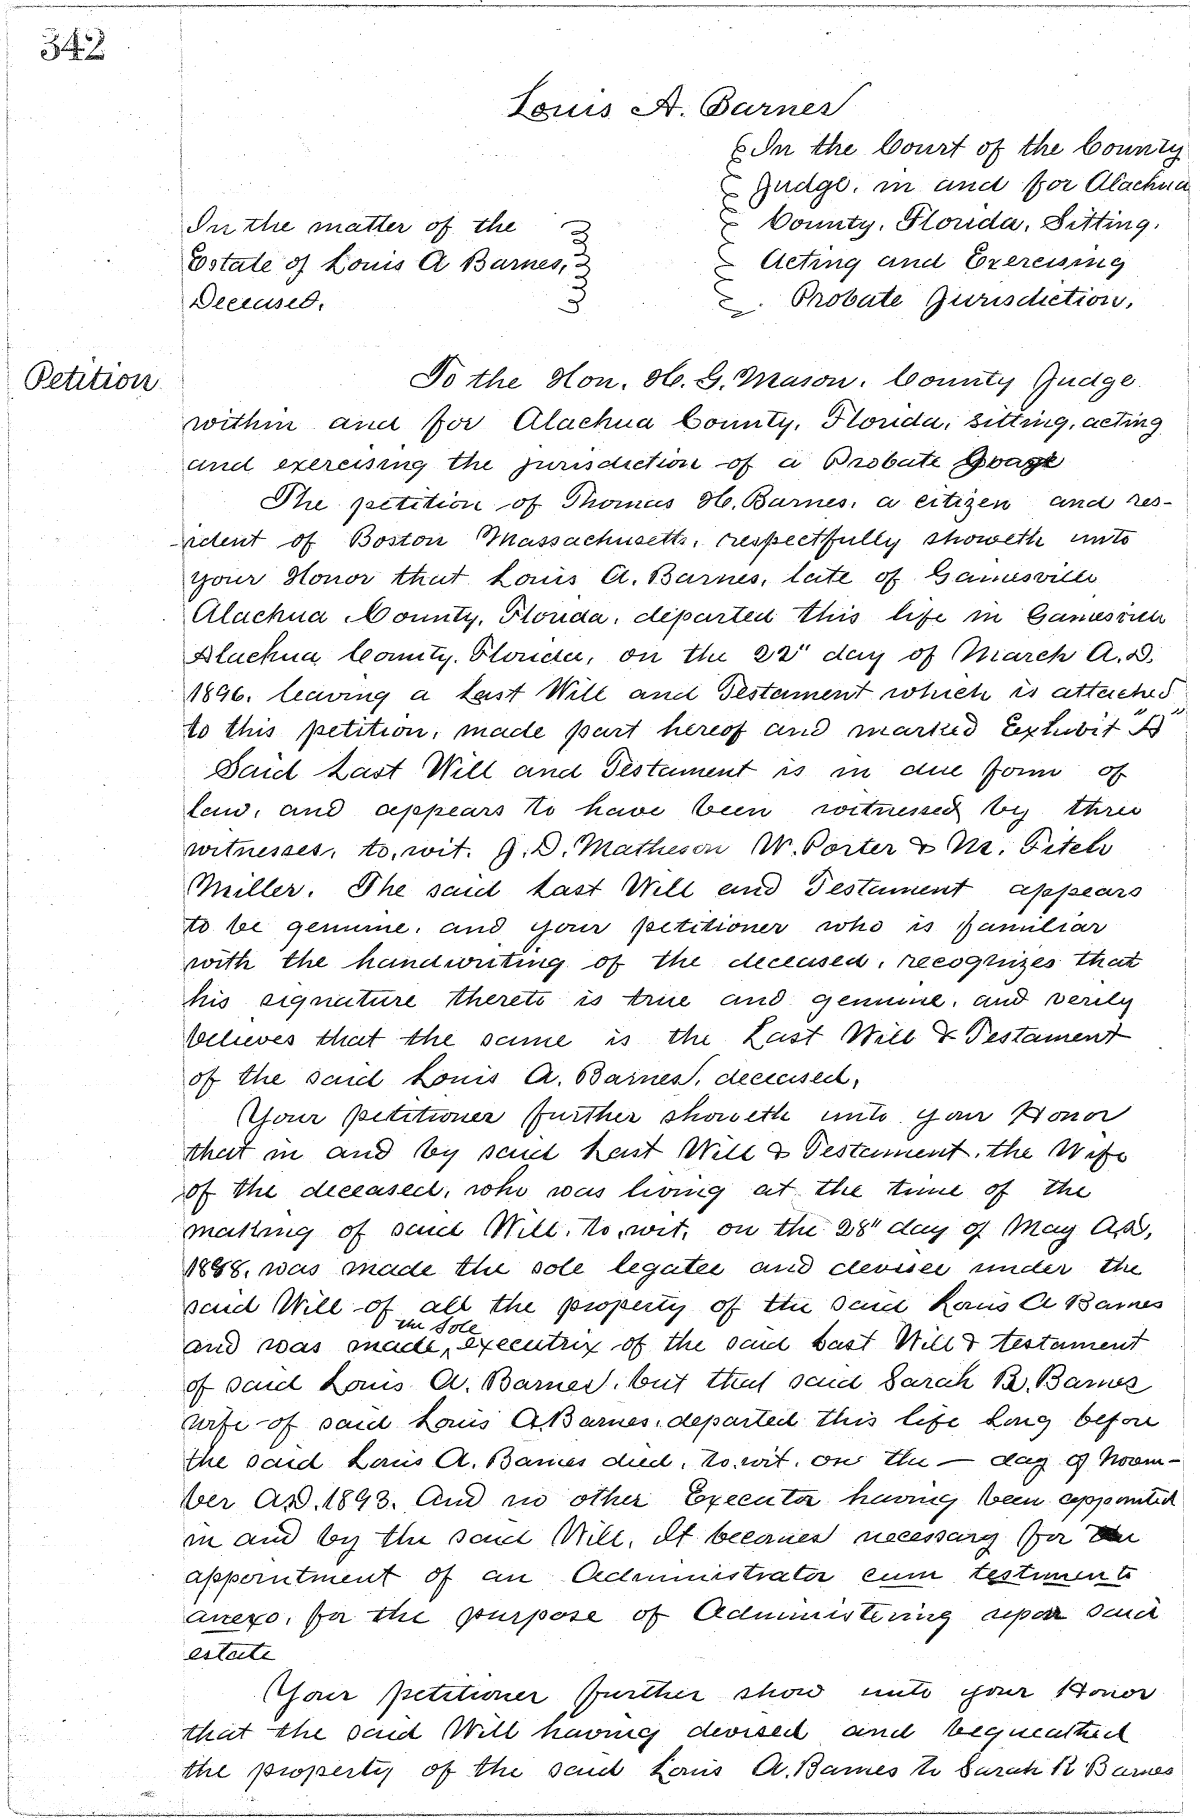 342
Louis A. Barnes
In the Court of the County
Judge, in and for Alachua
County, Florida, Sitting,
Acting and Exercising
Probate Jurisdiction,
In the matter of the
Estate of Louis A Barnes,
Deceased,
Petition
To the Hon. H. G. Mason, County Judge
within and for Alachua County, Florida, sitting, acting
and exercising the jurisdiction of a Probate
The petition of Thomas H. Barnes, a citizen and res-
-ident of Boston Massachusetts, respectfully showeth unto
your Honor that Louis A. Barnes, late of Gainesville
Alachua County, Florida, departed this life in Gainesville
Alachua County, Florida, on the 22" day of March A.D.
1896, leaving a Last Will and Testament which is attached
to this petition, made part hereof and marked Exhibit "A"
Said Last Will and Testament is in due form of
law, and appears to have been witnessed by three
witnesses, to, wit, J. D. Matheson W. Porter & M. Fitch
Miller. The said Last Will and Testament appears
to be genuine, and your petitioner who is familiar
with the handwriting of the deceased, recognizes that
his signature thereto is true and genuine, and verily
believes that the same is the Last Will & Testament
of the said Louis A. Barnes, deceased,
Your petitioner further showeth unto your Honor
that in and by said Last Will & Testament, the Wife
of the deceased, who was living at the time of the
making of said Will, to, wit, on the 28" day of May A.D,
1888, was made the sole legatee and devisee under the
said Will of all the property of the said Louis A Barnes
and was made, the sole executrix of the said Last Will & testament
of said Louis A. Barnes, but that said Sarah R. Barnes
wife of said Louis A. Barnes, departed this life long before
the said Louis A. Barnes died, to, wit, on the — day of Novem-
ber A.D. 1893. And no other Executor having been appointed
in and by the said Will, It becomes necessary for the
appointment of an Administrator cum testimento
anexo, for the purpose of Administering upon said
estate
Your petitioner further show unto your Honor
that the said Will having devised and bequeathed
the property of the said Louis A. Barnes to Sarah R Barnes